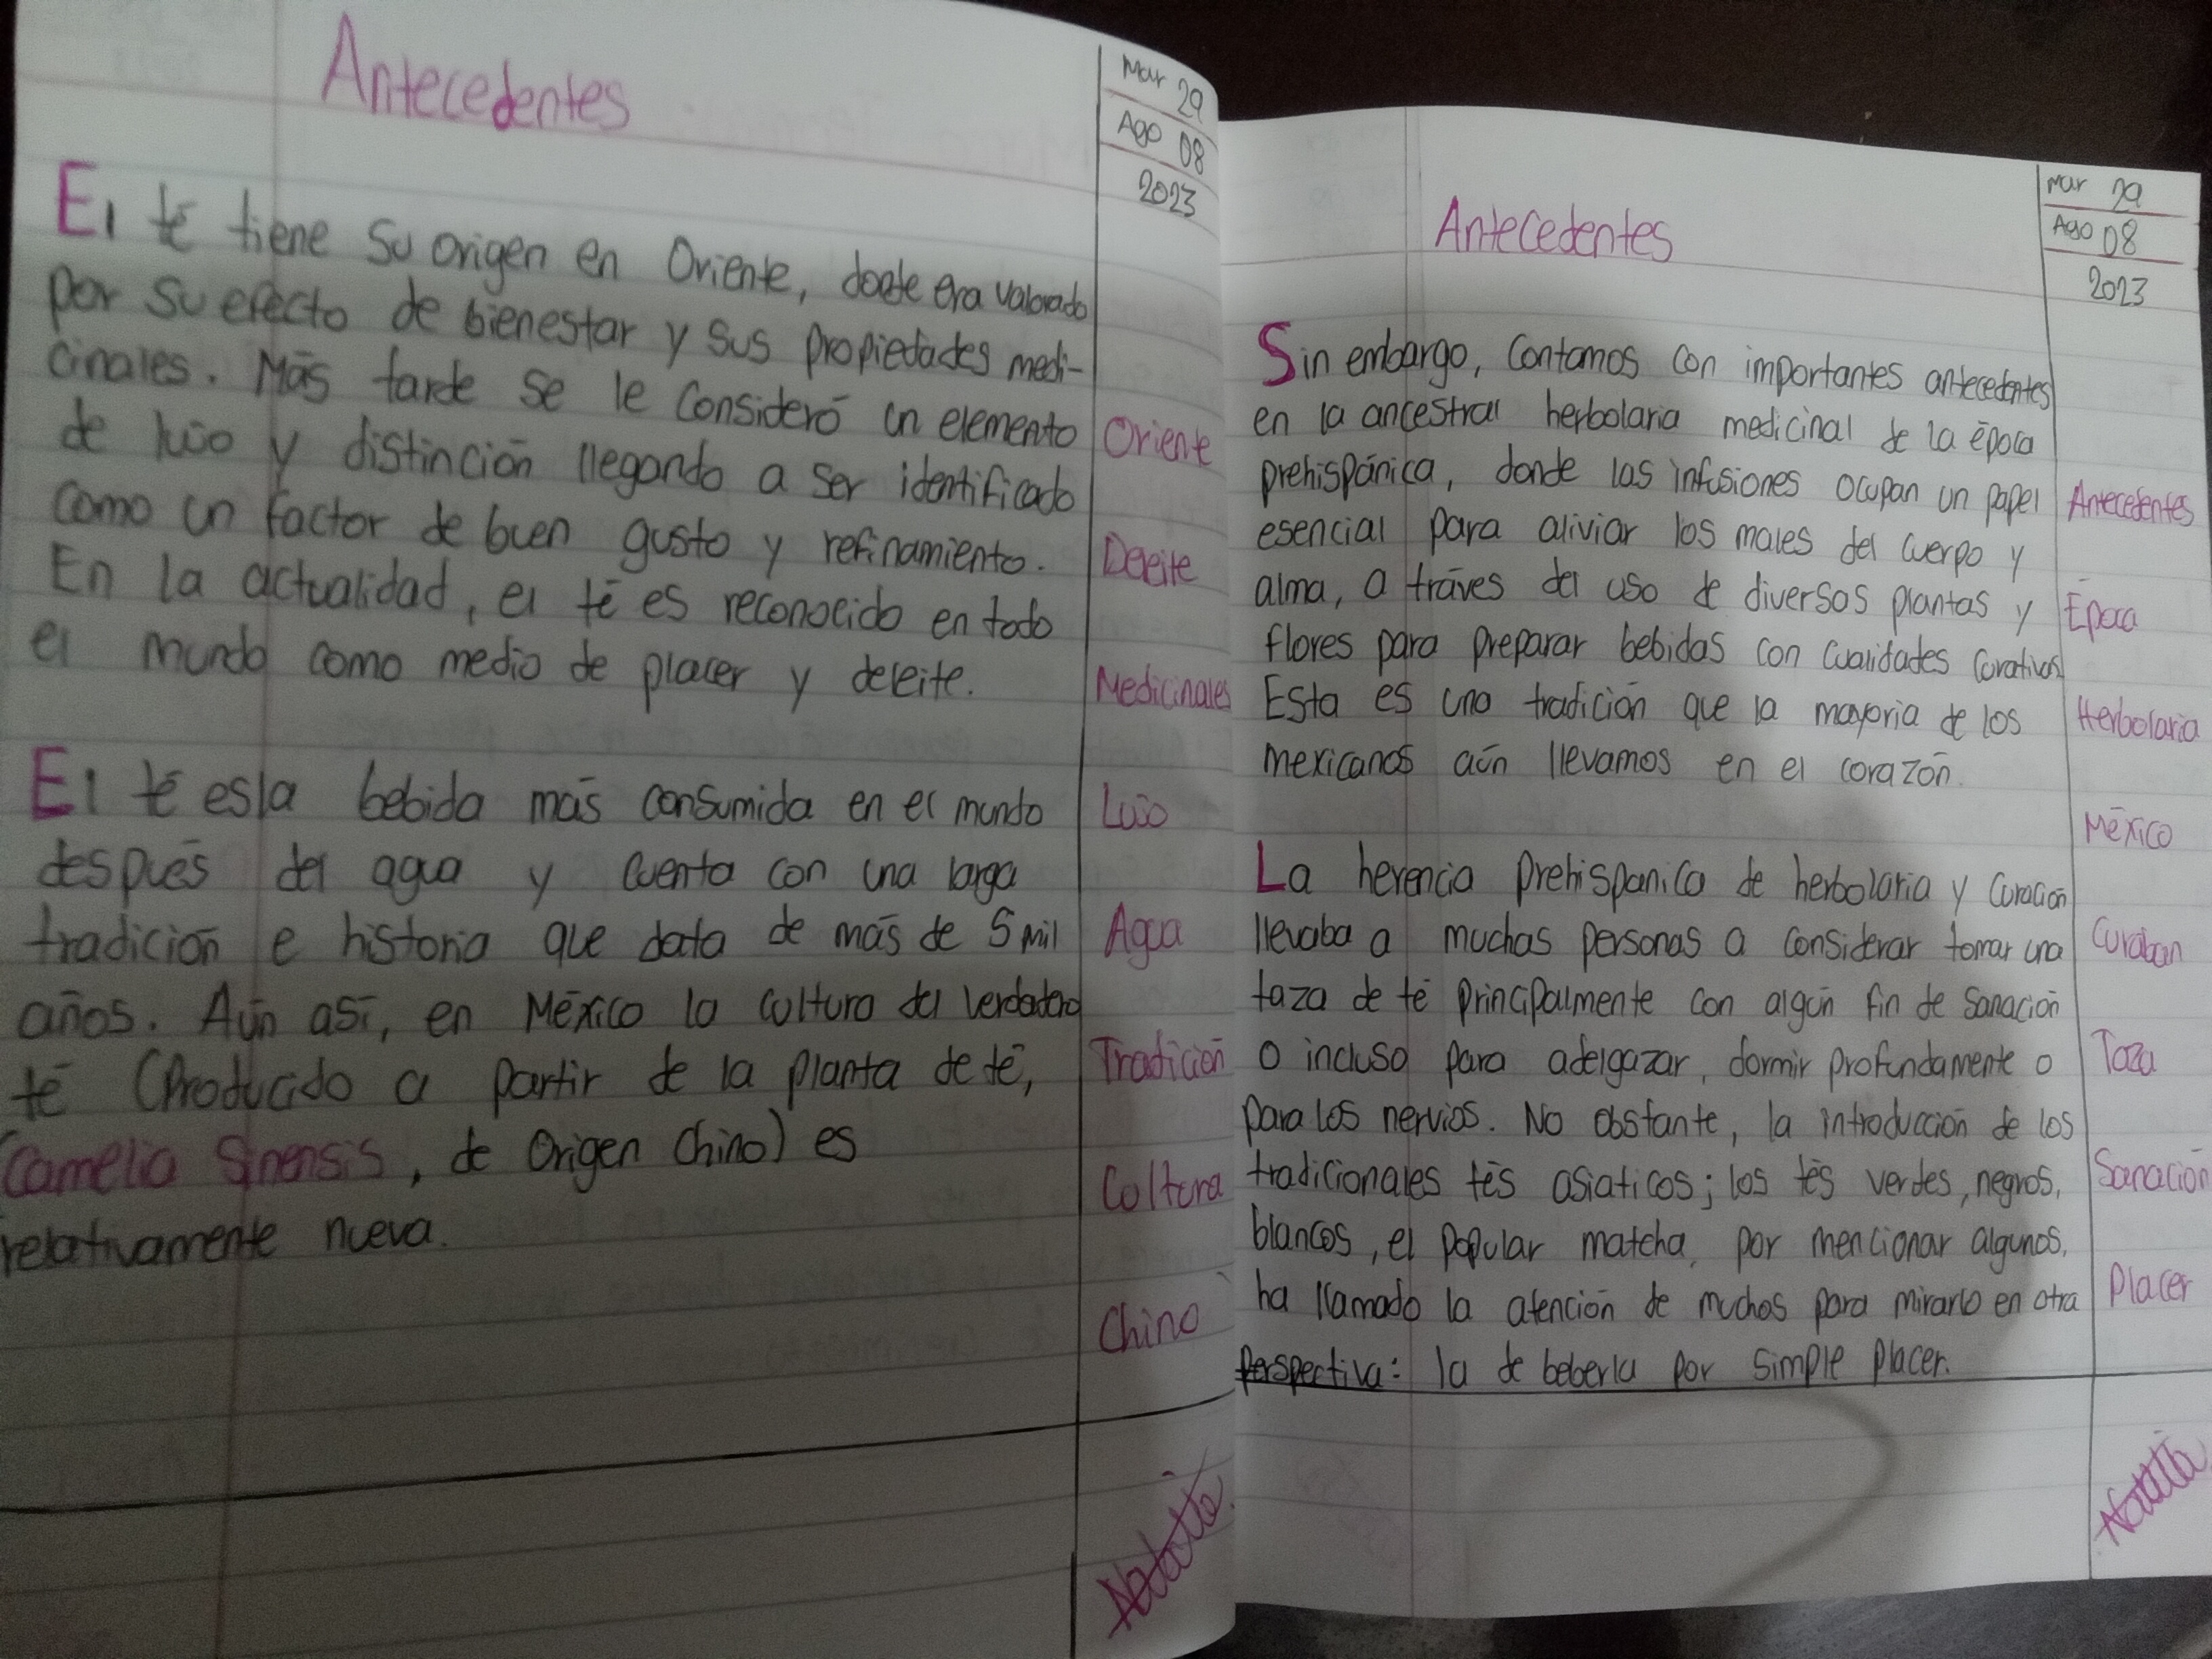 Antecedentes
Mar 29
Ago 08
2023
El té tiene su origen en Oriente, donde era valorado
por su efecto de bienestar y sus propiedades medi-
cinales. Más tarde se le consideró un elemento
de lujo y distinción llegando a ser identificado
como un factor de buen gusto y refinamiento.
En la actualidad, el té es reconocido en todo
el mundo como medio de placer y deleite.
El té es la bebida más consumida en el mundo
después del agua y cuenta con una larga
tradición e historia que data de más de 5 mil
años. Aún así, en México la cultura del verdadero
té (Producido a partir de la planta de té,
Camelia Sinensis, de Origen Chino) es
relativamente nueva.
Oriente
Deleite
Medicinales
Lujo
Agua
Tradición
Cultura
Chino
Antecedentes
Mar 29
Ago 08
2023
Sin embargo, Contamos con importantes antecedentes
en la ancestral herbolaria medicinal de la época
prehispánica, donde las infusiones ocupan un papel
esencial para aliviar los males del cuerpo y
alma, a tráves del uso de diversas plantas y
flores para preparar bebidas con cualidades curativas
Esta es una tradición que la mayoria de los
mexicanos aún llevamos en el corazón.
La herencia Prehispanica de herbolaria y Curación
llevaba a muchas personas a considerar tomar una
taza de té principalmente con algún fin de sanación
o incluso para adelgazar, dormir profundamente o
para los nervios. No obstante, la introducción de los
tradicionales tés asiaticos; los tés verdes, negros,
blancos, el popular matcha, por mencionar algunos,
ha llamado la atención de muchos para mirarlo en otra
perspectiva: la de beberla por simple placer.
Antecedentes
Época
Herbolaria
México
Curaban
Taza
Sanación
Placer